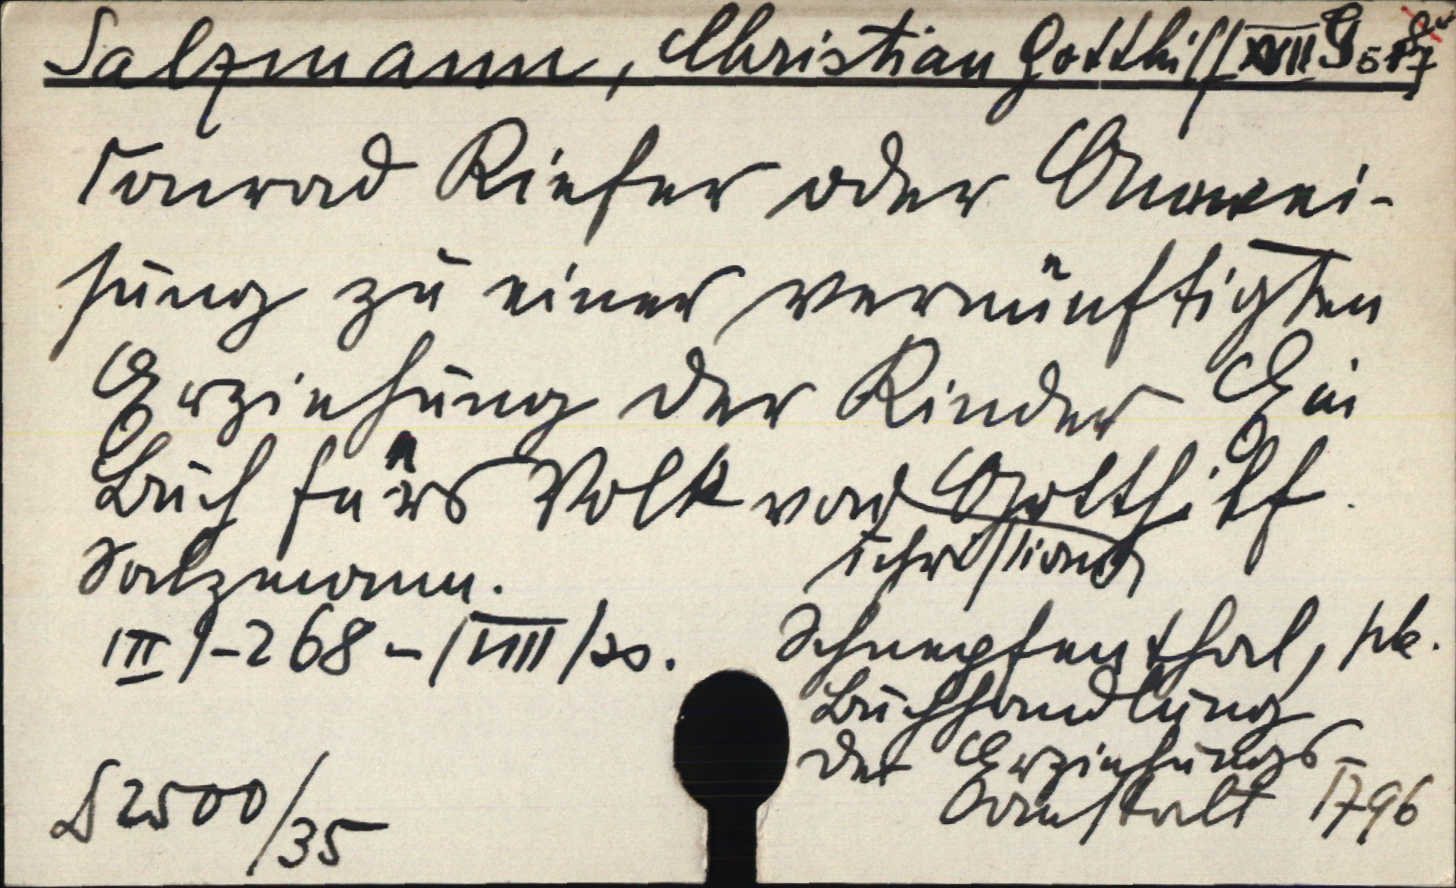 Salzmann, Christian Gotthilf XVIII
Conrad Kiefer oder Anwei-
sung zu einer vernünftigen
Erziehung der Kinder Ein
Buch fürs Volk von Gotthilf
Christian
Salzmann.
III 1-268
Schnepfenthal,
Buchhandlung
der Erziehungs-
Anstalt 1796
2500/35